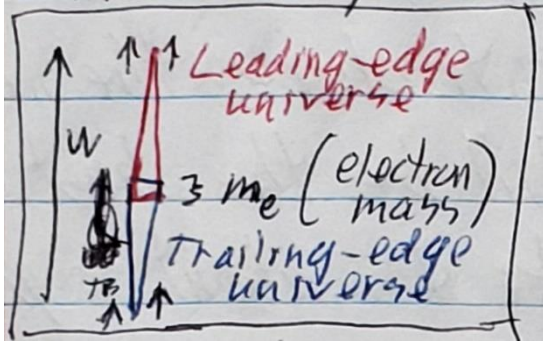 Leading-edge
universe
W
m_e (electron
mass)
Trailing-edge
universe